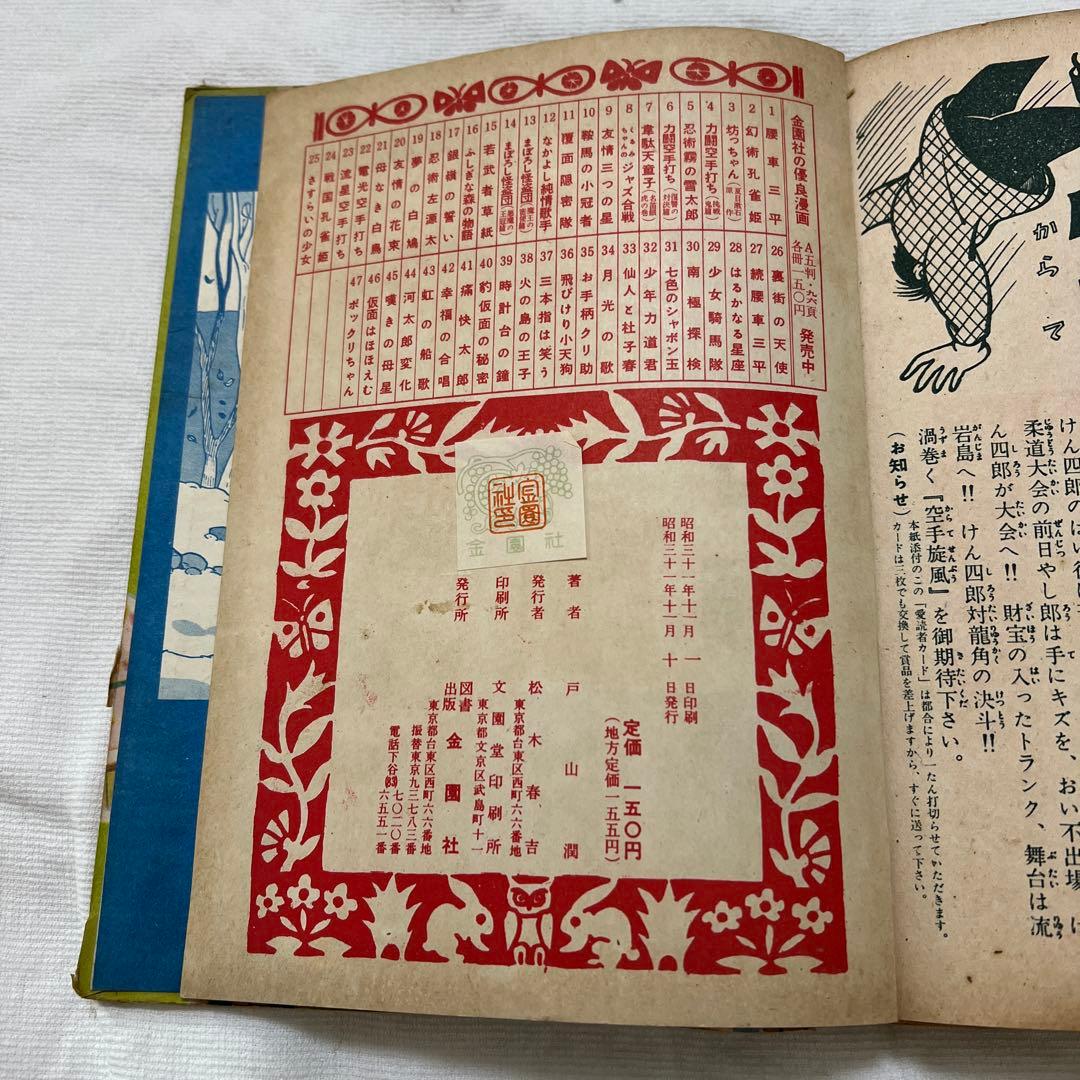 から て
けん四郎の
柔道大会の前日やし郎は手にキズを、おい不出場
ん四郎が大会へ!! 財宝の入ったトランク、舞台は流
岩島へ!! けん四郎対龍角の決斗!!
渦巻く『空手旋風』を御期待下さい。
(お知らせ)
本紙添付のこの『愛読者カード』は都合により一たん打切らせていただきます。
カードは三枚でも交換して賞品を差上げますから、すぐに送って下さい。
金園社の優良漫画
A五判・九六頁
各冊一五〇円
発売中
1 腰車三平
2 幻術孔雀姫
3 坊っちゃん(夏目漱石原作)
4 力闘空手打ち(挑戦鬼篇)
5 忍術霧の雪太郎
6 力闘空手打ち(復讐の対決篇)
7 韋駄天童子(名笛眼虎の巻)
8 くるみちゃんのジャズ合戦
9 友情三つの星
10 鞍馬の小冠者
11 覆面隠密隊
12 なかよし純情歌手
13 まぼろし怪盗団
14 まぼろし怪盗団
15 若武者草紙
16 ふしぎな森の物語
17 銀嶺の誓い
18 忍術左源太
19 夢の白鳩
20 友情の花束
21 母なき白鳥
22 電光空手打ち
23 流星空手打ち
24 戦国孔雀姫
25 さすらいの少女
26 裏街の天使
27 続腰車三平
28 はるかなる星座
29 少女騎馬隊
30 南極探検
31 七色のシャボン玉
32 少年力道君
33 仙人と杜子春
34 月光の歌
35 お手柄クリ助
36 飛びけり小天狗
37 三本指は笑う
38 火の島の王子
39 時計台の鐘
40 豹仮面の秘密
41 痛快太郎
42 幸福の合唱
43 虹の船歌
44 河太郎変化
45 嘆きの母星
46 仮面はほほえむ
47 ポックリちゃん
金園社印
金園社
昭和三十一年十一月 一 日印刷
昭和三十一年十一月 十 日発行
定価 一五〇円
(地方定価一五五円)
著者 戸山潤
発行者 松木春吉
東京都台東区西町六六番地
印刷所 文園堂印刷所
東京都文京区武島町十一
発行所 図書出版 金園社
東京都台東区西町六六番地
振替東京九三七八三番
電話下谷(83)七〇二〇番
六五五一番